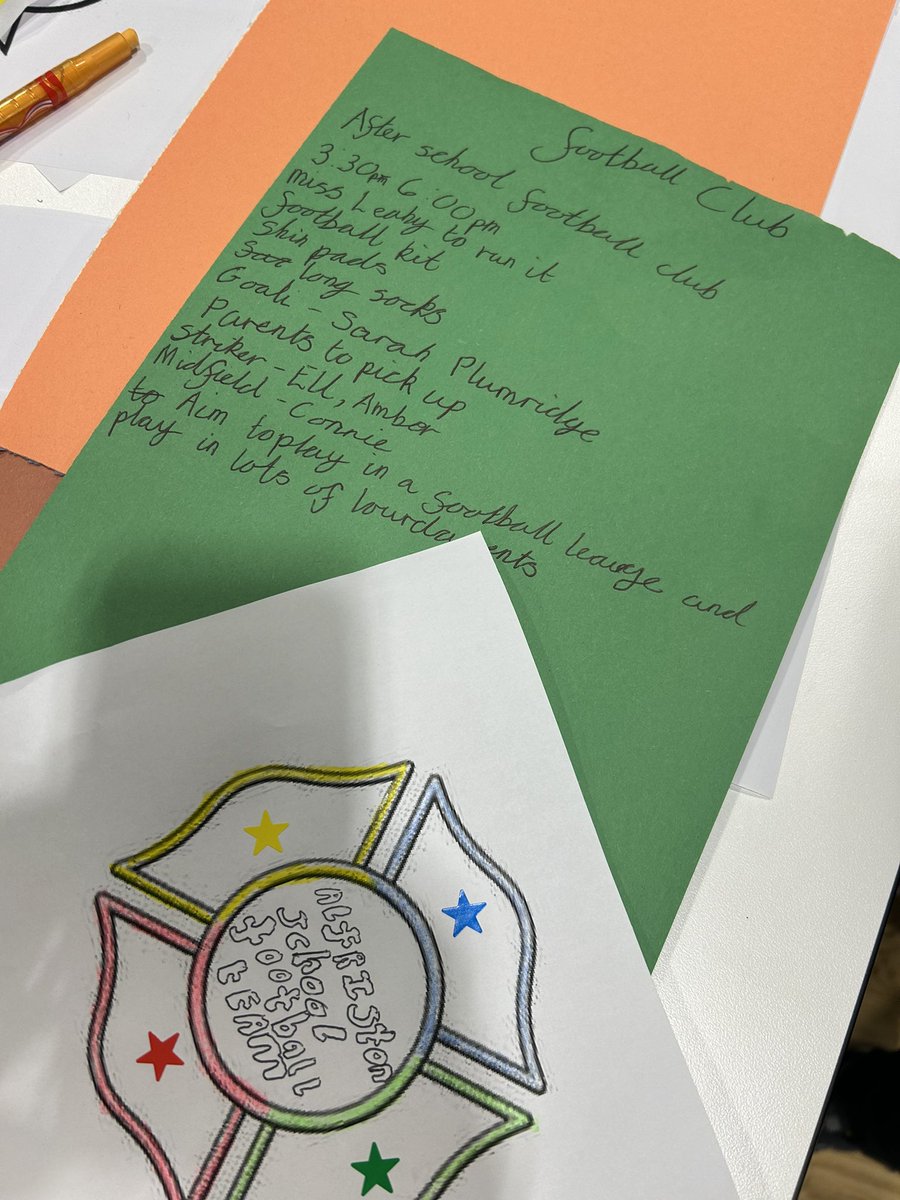 football Club
After school football club
3:30pm 6:00pm
miss Leahy to run it
football kit
Shin pads
long socks
Goal - Sarah Plumridge
Parents to pick up
Striker - Ell, Amber
Midfield - Connie
to Aim to play in a football leauge and
play in lots of
ALfRIston
School
football
tEAM